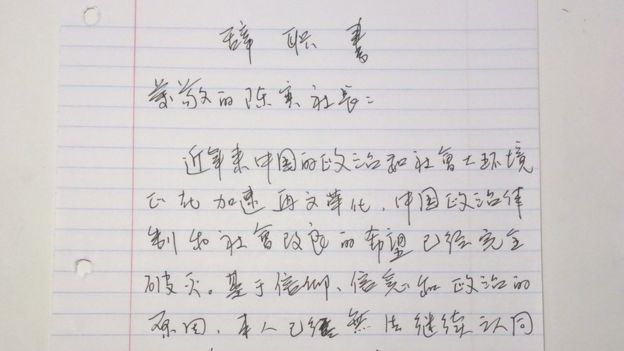 辞职書
尊敬的陈实社长：
近年来中国的政治和社會大环境
正在加速再文革化，中国政治体
制和社會改良的希望已经完全
破灭。基于信仰、信念和政治的
原因，本人已经無法继续认同